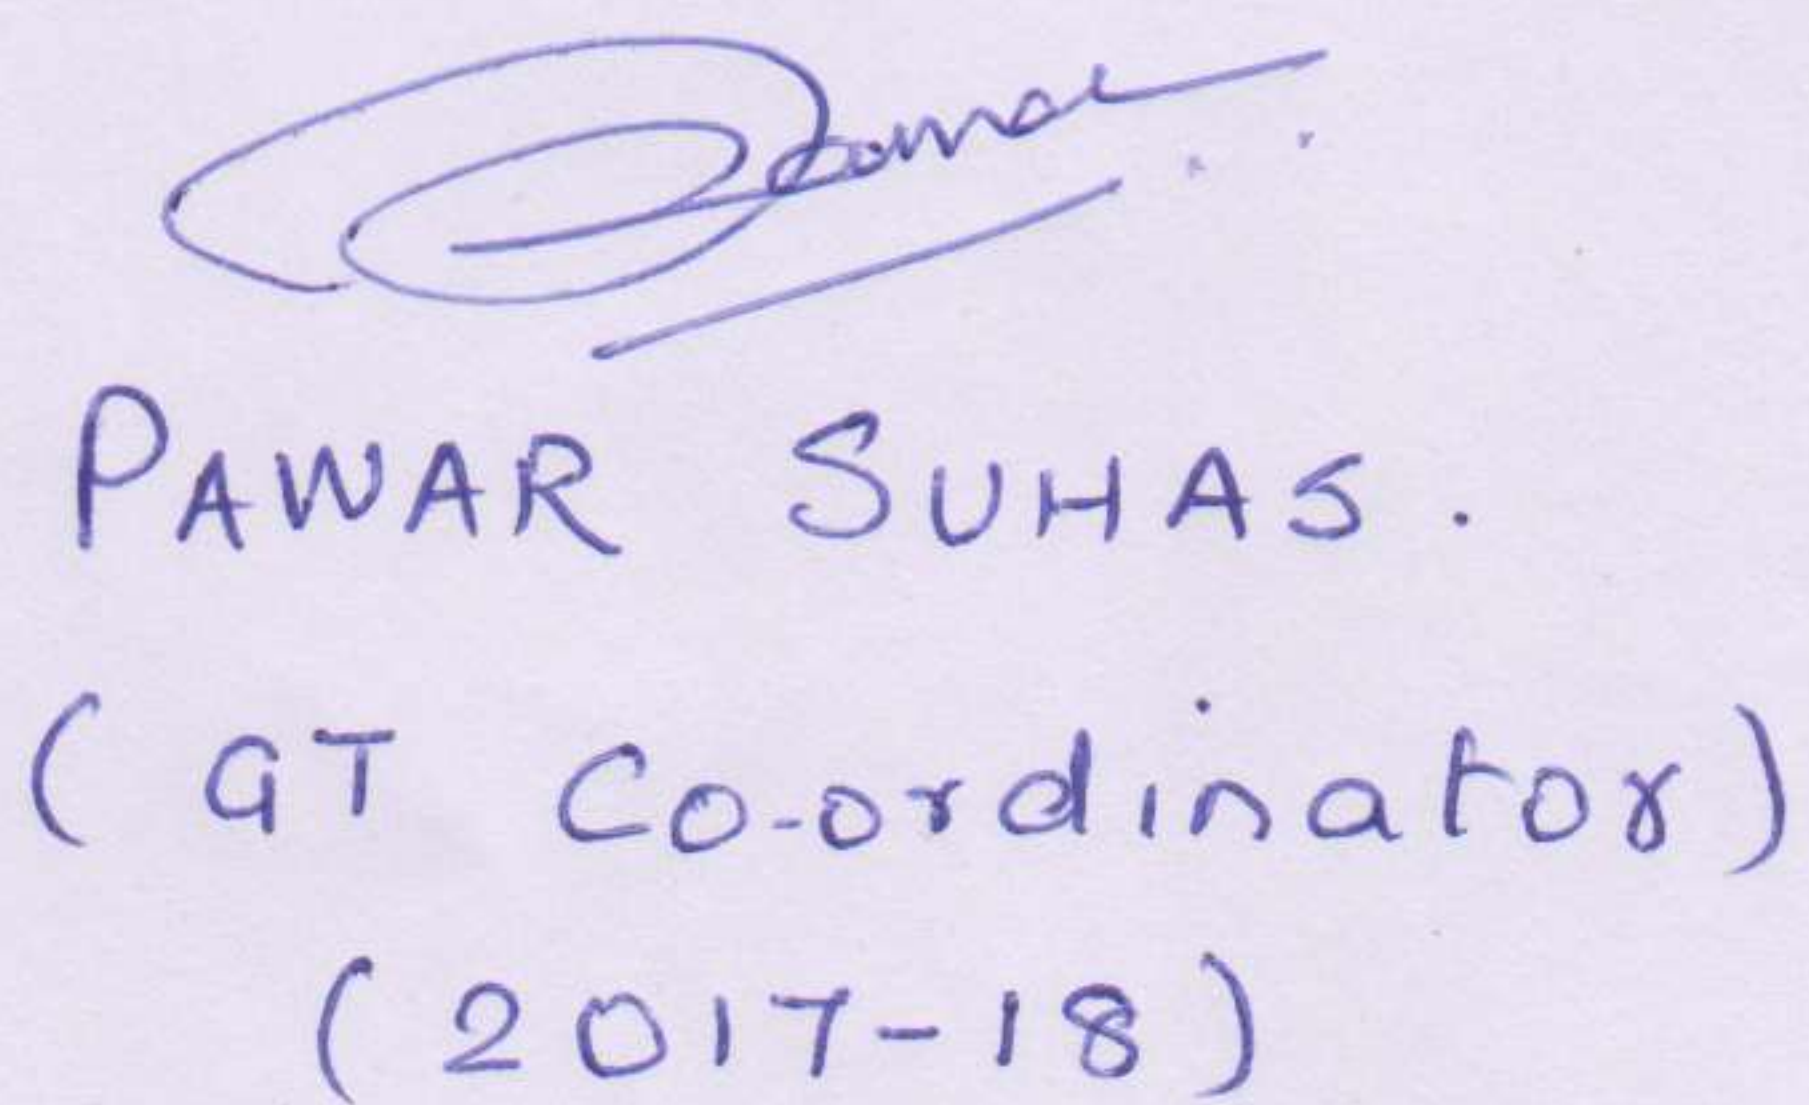 PAWAR SUHAS.
(GT Co-ordinator)
(2017-18)